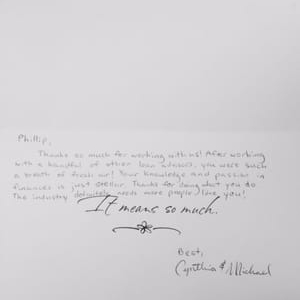 Phillip,
Thanks so much for working with us! After working
with a handful of other loan advisors, you were such
a breath of fresh air! Your knowledge and passion in
finances is just stellar. Thanks for doing what you do
The industry definitely needs more people like you!
It means so much.
Best,
Cynthia & Michael